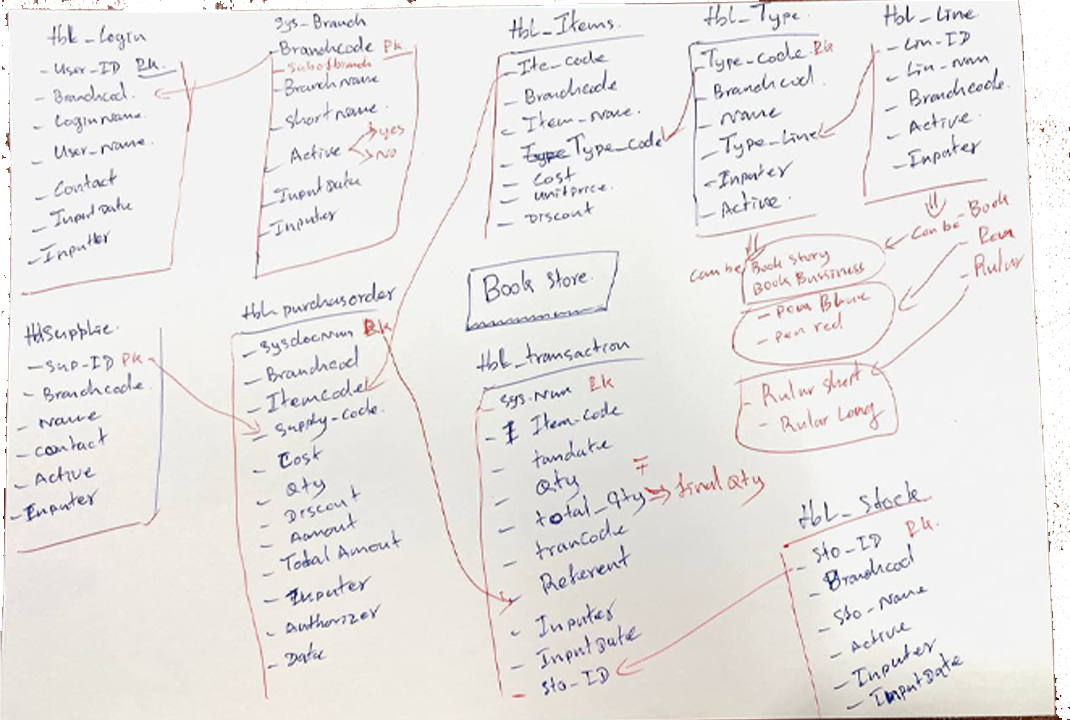 tbl_Login
- User_ID Pk.
- Branchcod.
- Login name.
- User_name.
- Contact
- Input Data
- Inputter
Sys_Branch
- Branchcode Pk
- Subofbranch
- Branch name
- Short name.
- Active yes
No
- Input Data
- Inputer
tbl_Items.
- Ite_code
- Branchcode
- Item_name.
- Type Type_code
- Cost
- unitprice.
- Discout
tbl_Type.
- Type_code. Pk
- Branchcod.
- Name
- Type_Line
- Inputer
- Active.
tbl_Line
- Lin_ID
- Lin_nam
- Branchcode.
- Active.
- Inputer
can be
Book Story
Book Bussiness
can be - Book
- Pen
- Rular
- pen Blue
- pen red
- Rular short
- Rular Long
Book Store.
tblSupplie.
- Sup_ID Pk
- Branchcode.
- Name
- contact
- Active
- Inputer
tbl_purchasorder
- Sysdocnum Pk
- Branchcod
- Itemcode
- Supply-Code.
- Cost
- Qty
- Discout
- Aamout
- Total Amout
- Inputer
- Authorizer
- Date
tbl_transaction
- Sys.Num Pk
- I Item-Code
- trandate
- Qty
- total_Qty => final Qty
- tranCode
- Referent
- Inputer
- Input Date
- Sto_ID
tbl_Stock
- Sto_ID Pk.
- Branchcod
- Sto_Name
- Active
- Inputer
- Input Date